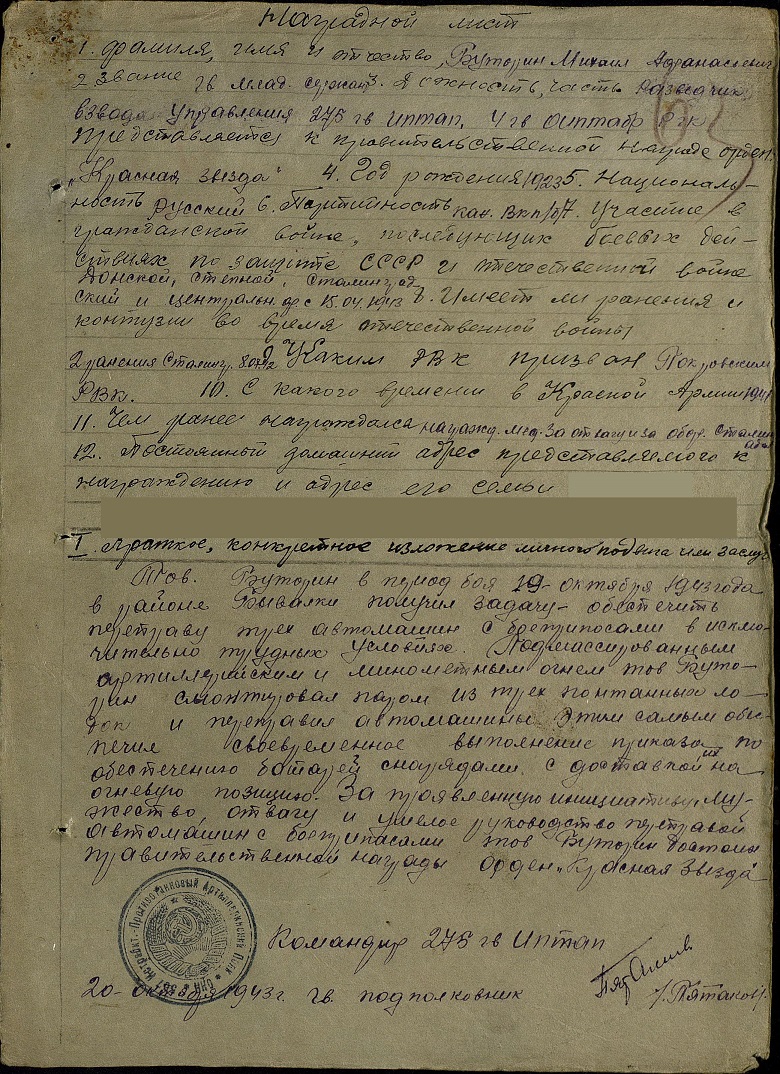 Наградной лист
1. Фамилия, имя и отчество, Буторин Михаил Афанасьевич
2 Звание гв млад. сержант 3. Должность, часть Разведчик
взвода Управления 275 гв иптап, 4 гв оиптабр ргк
Представляется к правительственной награде орден.
„Красная звезда" 4. Год рождения 1923 5. Националь-
ность Русский 6. Партийность кан. Вкп/б/ 7. Участие в
гражданской войне, последующих боевых дей-
ствиях по защите СССР и отечественной войне
Донской, степной, Сталинград
ский и централь. фр с 15.04.1943 8. Имеет ли ранения и
контузии во время отечественной войны
2 ранения Сталингр. 9 Каким РВК призван Покровским
РВК. 10. С какого времени в Красной Армии 1941
11. Чем ранее награждался награжд. мед. За отвагу и за обор. Сталин
града
12. Постоянный домашний адрес представляемого к
награждению и адрес его семьи
I. Краткое, конкретное изложение личного подвига или заслуг
Тов. Буторин в период боя 19 октября 1943 года
в районе Бывалки получил задачу - обеспечить
переправу трех автомашин с боеприпасами в исклю-
чительно трудных условиях. Под массированным
артиллерийским и минометным огнем тов Буто-
рин смонтировал паром из трех понтанных ло-
док и переправил автомашины. Этим самым обес-
печил своевременное выполнение приказа по
обеспечению батарей снарядами с доставкой их на
огневую позицию. За проявленную инициативу, му-
жество, отвагу и умелое руководство переправой
автомашин с боеприпасами тов Буторин достоин
правительственной награды орден „Красная Звезда"
Командир 275 гв иптап
20 - октября 1943 г. гв. подполковник
/. Пятаков/.
Истребит.-Противотанковый Артиллерийский Полк